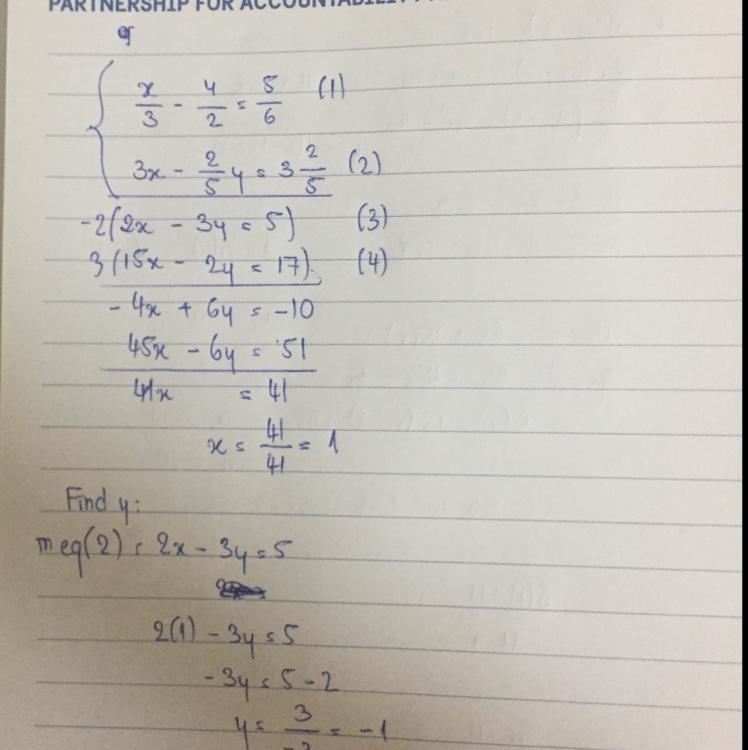 PARTNERSHIP FOR ACCOUNTABILITY
x/3 - y/2 = 5/6 (1)
3x - 2/5 y = 3 2/5 (2)
-2(2x - 3y = 5) (3)
3(15x - 2y = 17) (4)
- 4x + 6y = -10
45x - 6y = 51
41x = 41
x = 41/41 = 1
Find y:
eq(2): 2x - 3y = 5
2(1) - 3y = 5
-3y = 5 - 2
y = 3/-3 = -1